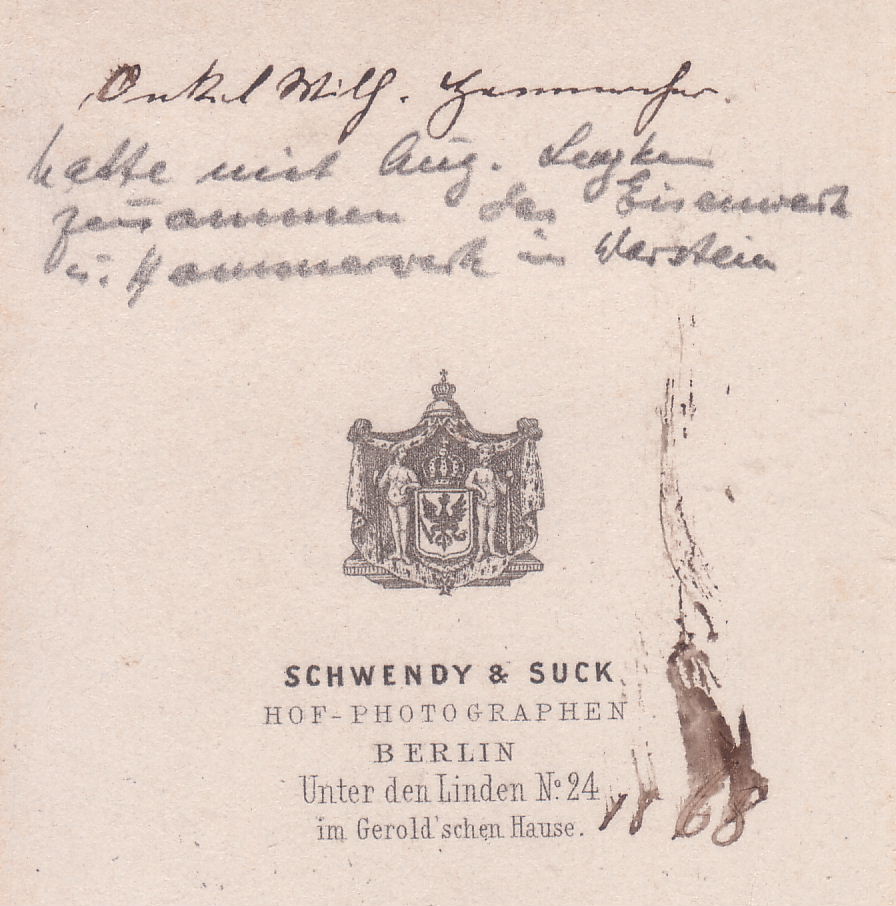 Onkel Wilh. Hammacher.
hatte mit Aug.
zusammen das Eisenwerk
u. Hammerwerk in Warstein
SCHWENDY & SUCK
HOF-PHOTOGRAPHEN
BERLIN
Unter den Linden No. 24
im Gerold'schen Hause.
1868